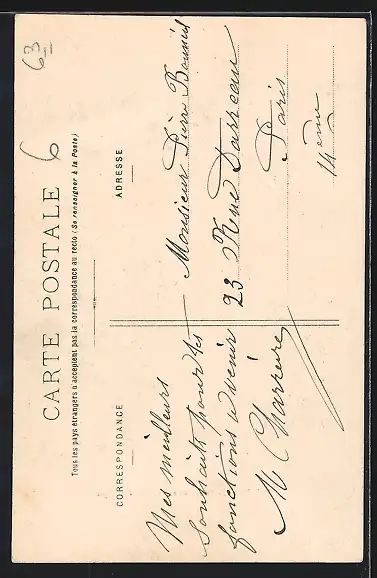 63
CARTE POSTALE 6
Tous les pays étrangers n'acceptent pas la correspondance au recto (Se renseigner à la Poste)
CORRESPONDANCE
Mes meilleurs
souhaits pour les
fonctions à venir
M Charrière
ADRESSE
Monsieur Pierre
23 Rue Darreau
Paris
14 eme